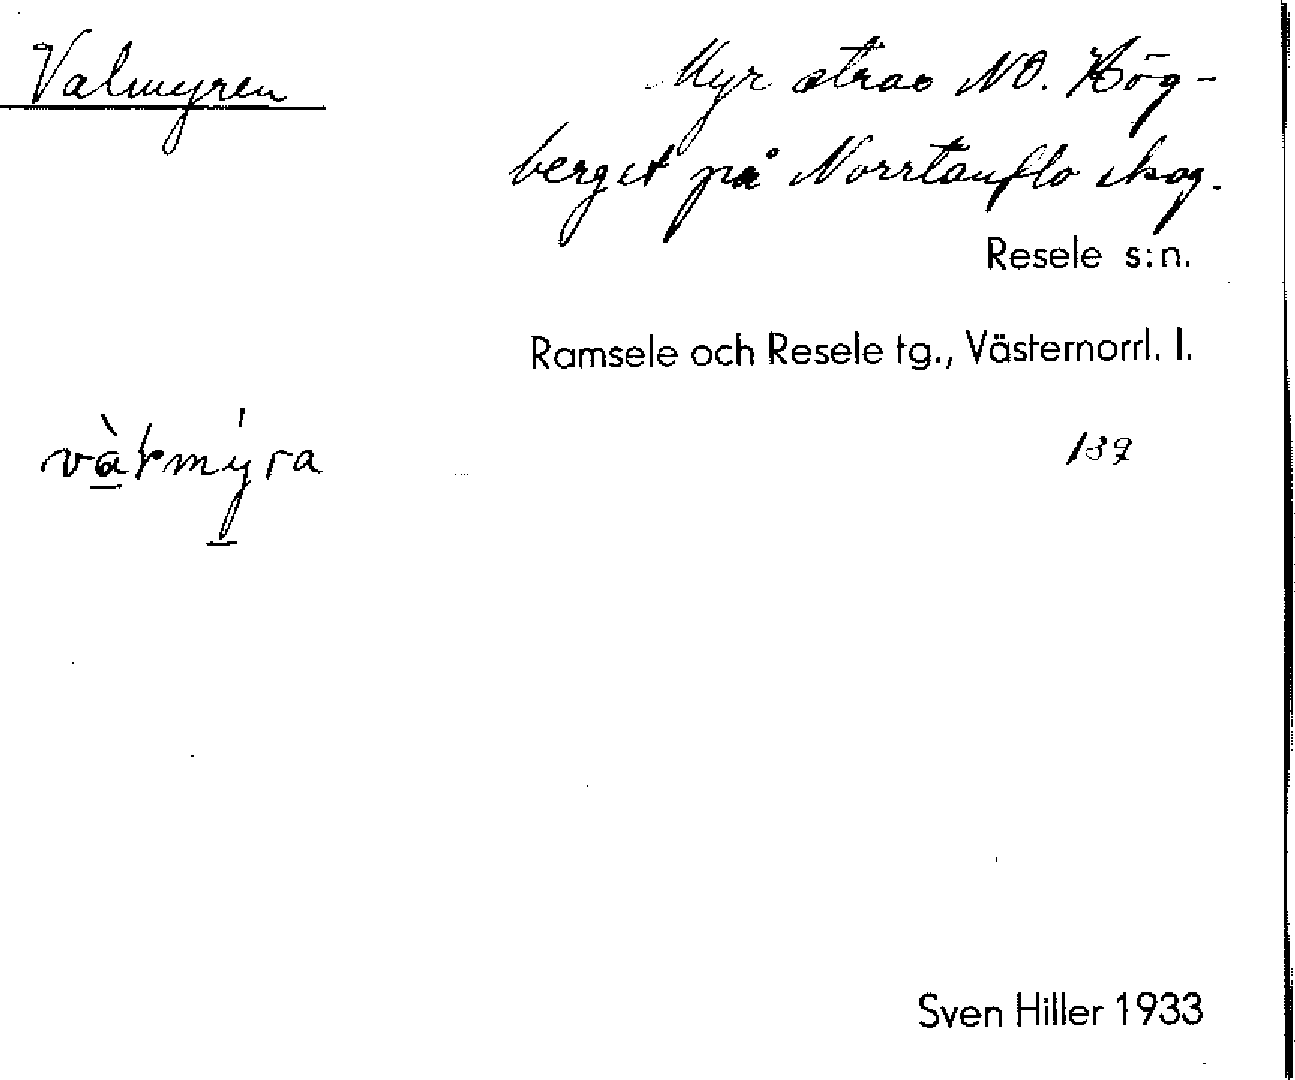 Valmyren
Myr strax NO. Hög-
berget på Norrtanflo skog.
Resele s:n.
Ramsele och Resele tg., Västernorrl. l.
139
Sven Hiller 1933